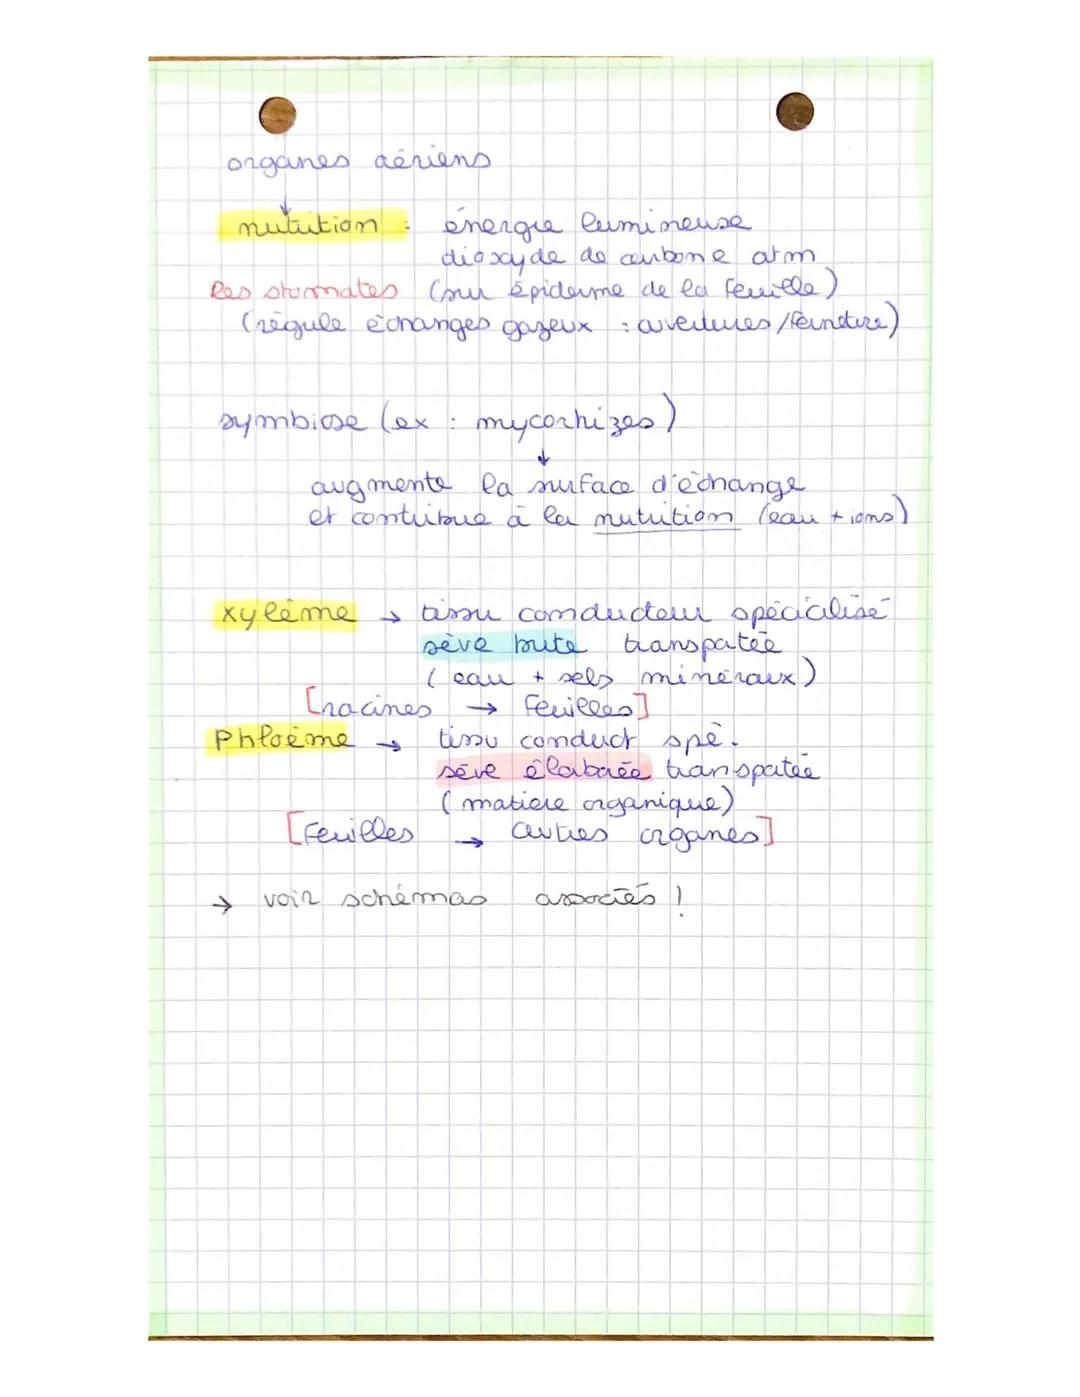 organes aériens
nutrition : énergie lumineuse
dioxyde de carbone atm
les stomates (sur épiderme de la feuille)
(régule échanges gazeux : ouvertures/fermeture)
symbiose (ex : mycorhizes)
↓
augmente la surface d'échange
et contribue à la nutrition (eau + ions)
xylème → tissu conducteur spécialisé
sève brute transportée
(eau + sels minéraux)
[racines → feuilles]
Phloème → tissu conduct spé.
sève élaborée transportée
(matière organique)
[Feuilles → autres organes]
→ voir schémas associés !